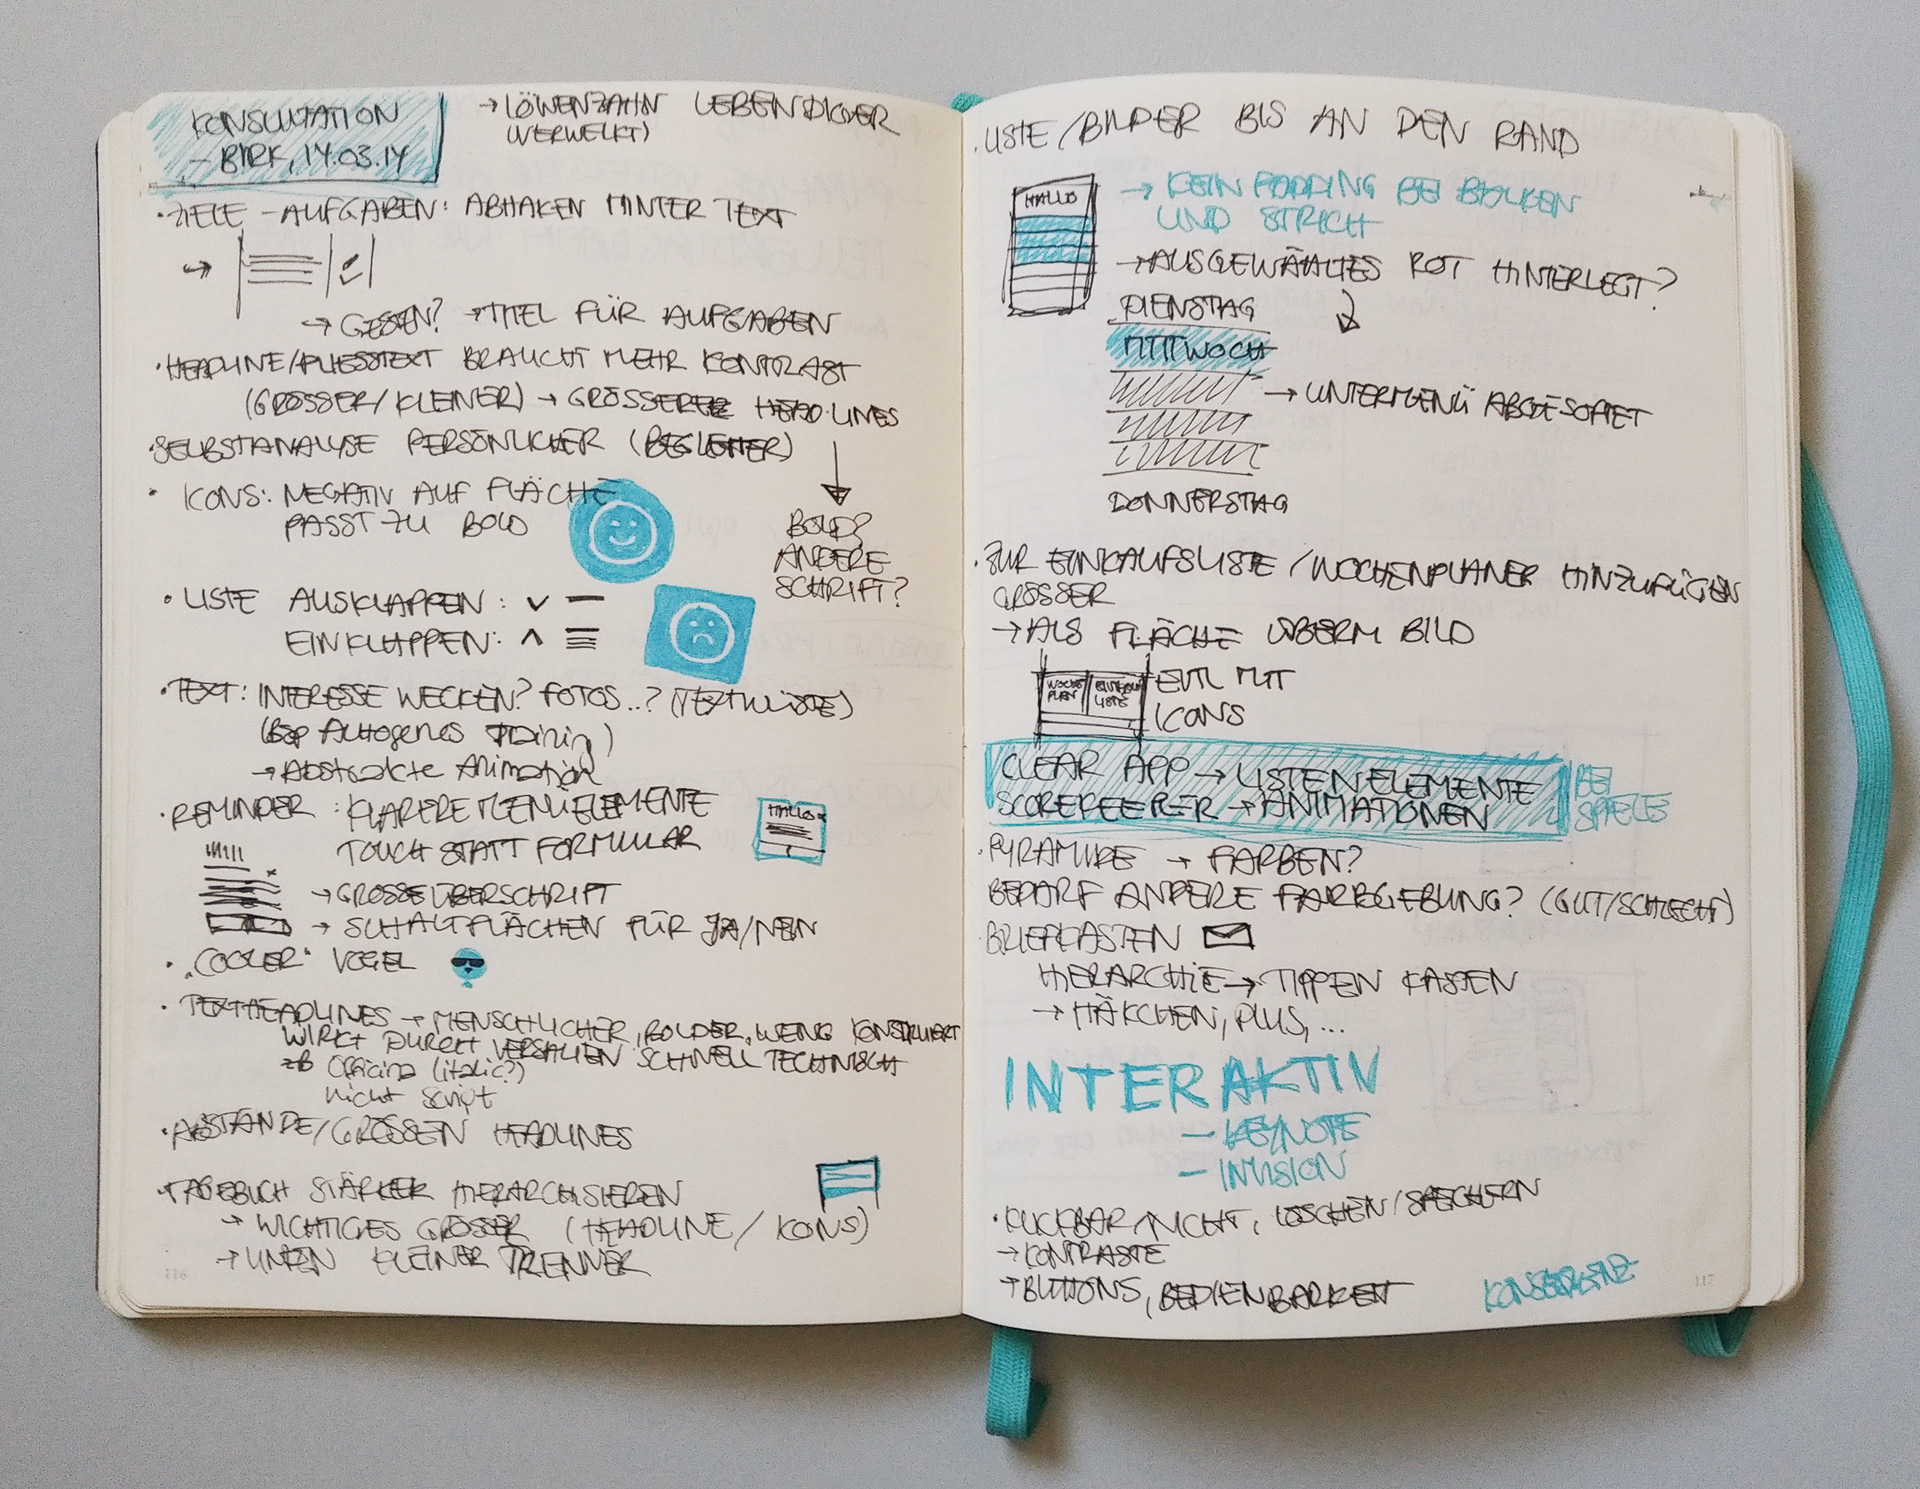 KONSULTATION
– BIRK, 14.03.14
→ LÖWENZAHN LEBENDIGER
(VERWELKT)
· ZIELE – AUFGABEN: ABHAKEN HINTER TEXT
→ GESTEN? → TITEL FÜR AUFGABEN
· HEADLINE/FLIESSTEXT BRAUCHT MEHR KONTRAST
(GRÖSSER/KLEINER) → GRÖSSERE HEADLINES
· SELBSTANALYSE PERSÖNLICHER (BEGLEITER)
BOLD?
ANDERE
SCHRIFT?
· ICONS: NEGATIV AUF FLÄCHE
PASST ZU BOLD
· LISTE AUSKLAPPEN:
EINKLAPPEN:
· TEXT: INTERESSE WECKEN? FOTOS..? (TEXTWÜSTE)
(Bsp Autogenes Training)
→ Abstrakte Animation
· REMINDER: KLARERE MENÜELEMENTE
TOUCH STATT FORMULAR
HALLO x
→ GROSSE ÜBERSCHRIFT
→ SCHALTFLÄCHEN FÜR JA/NEIN
· „COOLER“ VOGEL
· TEXTHEADLINES → MENSCHLICHER, BOLDER, WENIG KONSTRUIERT
WIRKT DURCH VERSALIEN SCHNELL TECHNISCH
zB Officina (italic?)
nicht script
· ABSTÄNDE/GRÖSSEN HEADLINES
· TAGEBUCH STÄRKER HIERARCHISIEREN
→ WICHTIGES GRÖSSER (HEADLINE/ICONS)
→ UNTEN KLEINER TRENNER
116
· LISTE/BILDER BIS AN DEN RAND
HALLO
→ KEIN PADDING BEI BALKEN
UND STRICH
→ AUSGEWÄHLTES ROT HINTERLEGT?
DIENSTAG
MITTWOCH
→ UNTERMENÜ ABGESOFTET
DONNERSTAG
· ZUR EINKAUFSLISTE/WOCHENPLANER HINZUFÜGEN
GRÖSSER
→ ALS FLÄCHE ÜBERM BILD
WOCHEN
PLAN
EINKAUFS
LISTE
EVTL MIT
ICONS
CLEAR APP → LISTENELEMENTE
SCOREKEEPER → ANIMATIONEN
BEI
SPIELE
· PYRAMIDE → FARBEN?
BEDARF ANDERE FARBGEBUNG? (GUT/SCHLECHT)
· BRIEFKASTEN
HIERARCHIE → TIPPEN KÄSTEN
→ HÄKCHEN, PLUS, ...
INTERAKTIV
– KEYNOTE
– INVISION
· KLICKBAR/NICHT, LÖSCHEN/SPEICHERN
→ KONTRASTE
→ BUTTONS, BEDIENBARKEIT
KONSEQUENZ
117